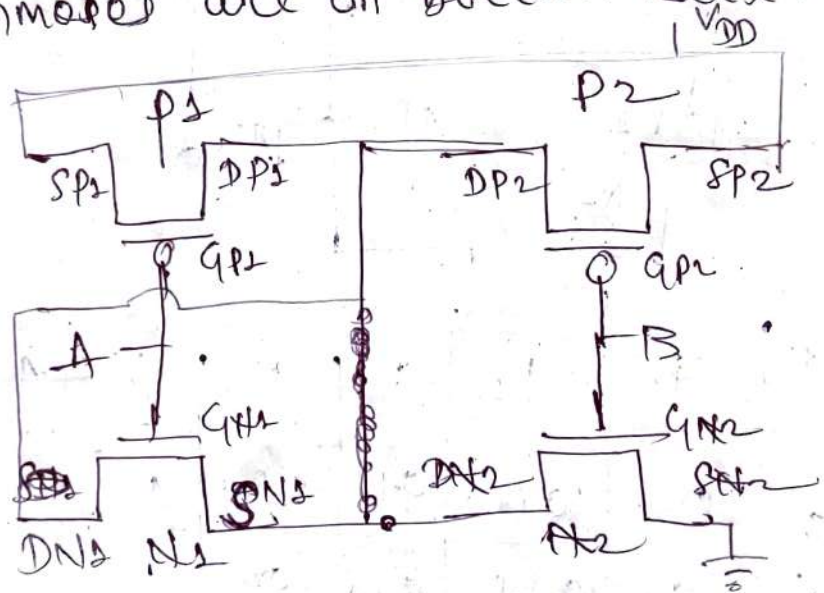 are on
VDD
P1 P2
SP1 DP1 DP2 SP2
GP1 GP2
A B
GN1 GN2
SN1 DN2 SN2
DN1 N1 N2